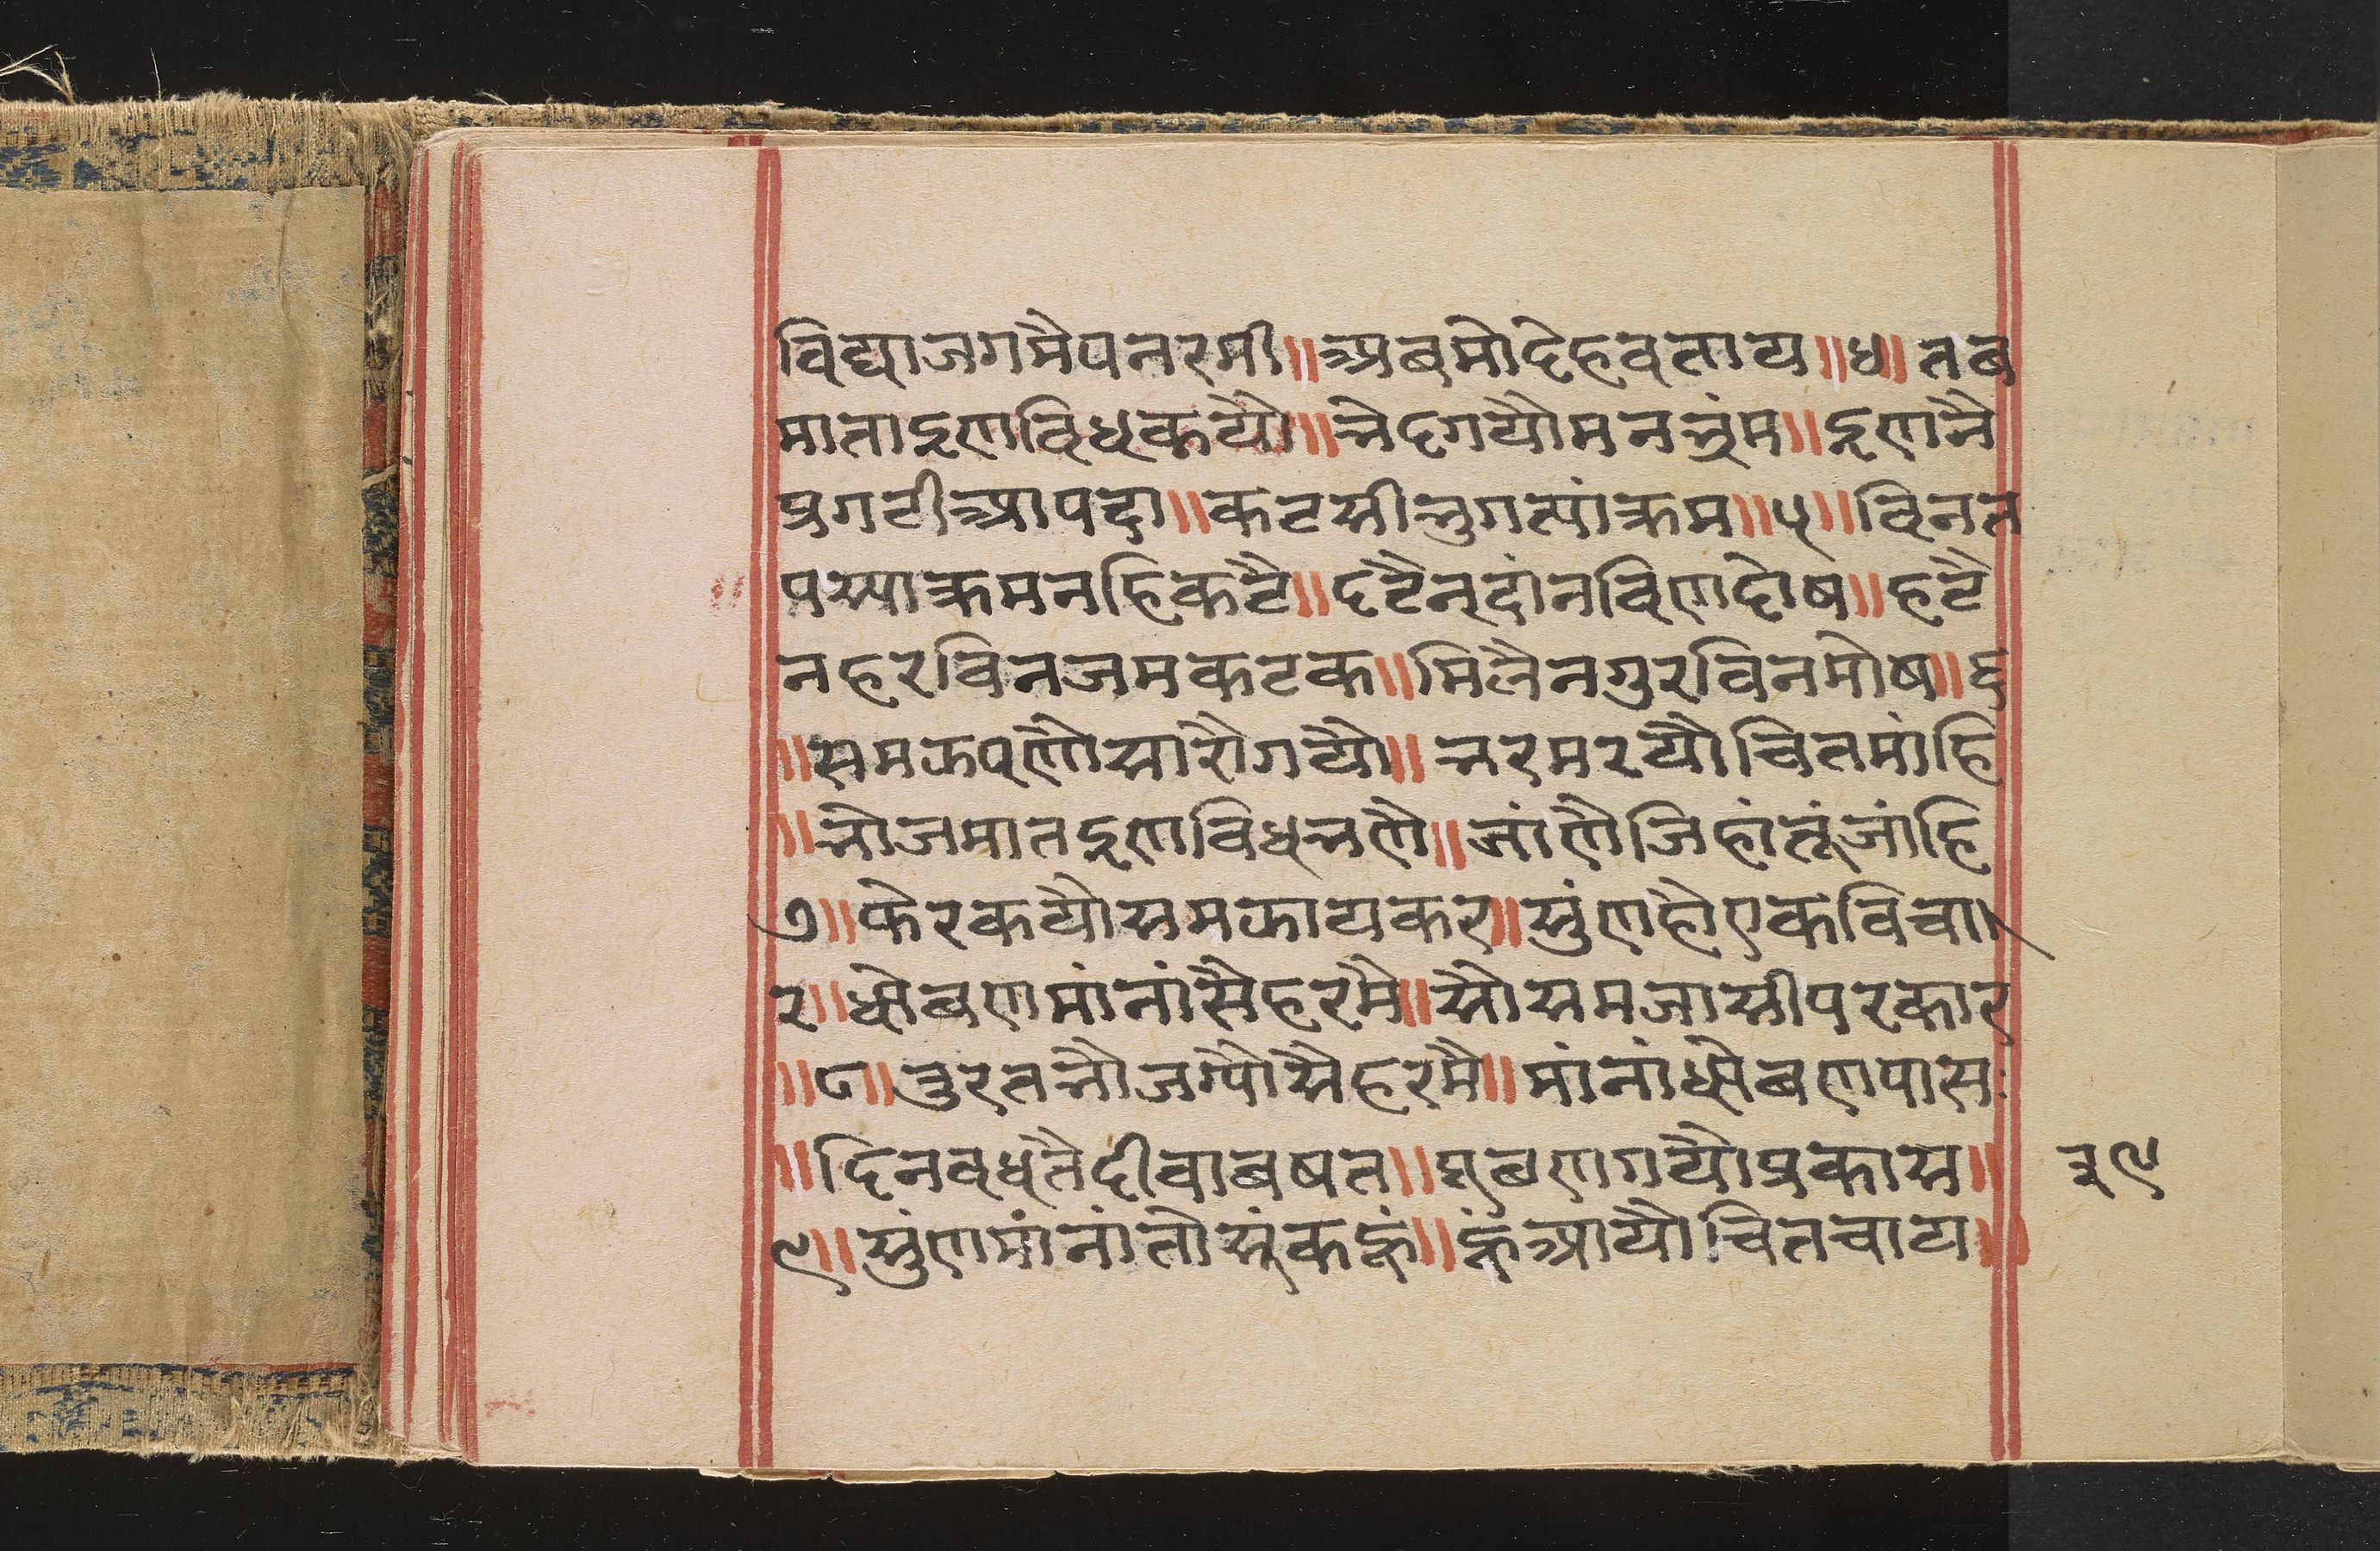 विद्याजगमैपनरमी॥अबमोदेहबताय॥४॥तब
माताइणविधकयौ॥नेदगयौमनभ्रंम॥इणनै
प्रगटीआपदा॥कटसीभुगत्यांक्रम॥५॥विनत
पस्याक्रमनहिकटै॥दटैनदांनविणदोष॥हटै
नहरविनजमकटक॥मिलैनगुरविनमोष॥६
॥समऊपणौसारौगयौ॥नरमरयौचितमांहि
॥नौजमातइणविधभणै॥जांणैजिहांतूंजांहि
७॥फेरकयौसमऊायकर॥सुंणहौएकविचा
र॥धोबणमांनांसैहरमै॥सौसमजासीपरकार
॥८॥तुरतभौजग्यौसैहरमै॥मांनांधोबणपास
॥दिनबधतैदीवाबषत॥धोबणगयौप्रकास॥ ३९
९॥सुंणमांनांतोसूंकहूं॥हूंआयौचितचाय॥